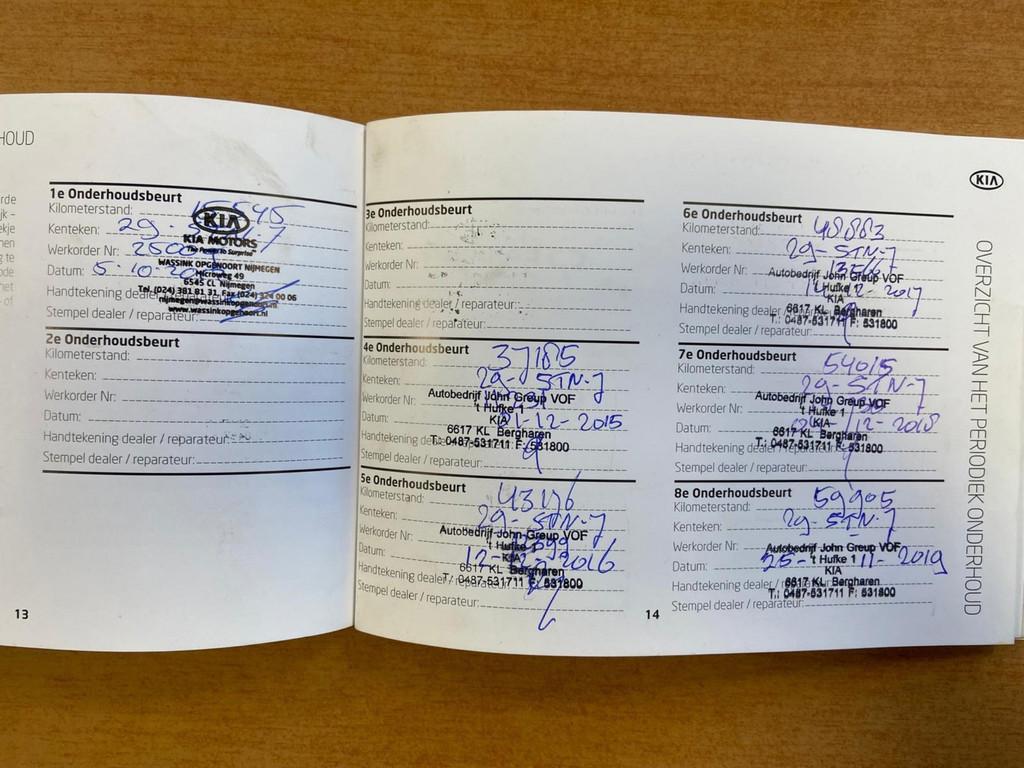 HOUD
1e Onderhoudsbeurt
Kilometerstand: 15545
Kenteken: 29-
Werkorder Nr:
Datum: 5-10-20
Handtekening dealer / reparateur:
Stempel dealer / reparateur:
KIA
KIA MOTORS
The Power to Surprise™
WASSINK OPGENOORT NIJMEGEN
Microweg 49
6545 CL Nijmegen
Tel. (024) 381 81 31, Fax (024) 324 00 06
nijmegen@wassinkopgenoort.nl
www.wassinkopgenoort.nl
2e Onderhoudsbeurt
Kilometerstand:
Kenteken:
Werkorder Nr:
Datum:
Handtekening dealer / reparateur:
Stempel dealer / reparateur:
13
3e Onderhoudsbeurt
Kilometerstand:
Kenteken:
Werkorder Nr:
Datum:
Handtekening dealer / reparateur:
Stempel dealer / reparateur:
4e Onderhoudsbeurt
Kilometerstand: 37185
Kenteken: 29-STN-7
Werkorder Nr:
Datum: -12-2015
Handtekening dealer / reparateur:
Stempel dealer / reparateur:
Autobedrijf John Greup VOF
't Hufke 1
KIA
6617 KL Bergharen
T.: 0487-531711 F: 531800
5e Onderhoudsbeurt
Kilometerstand: 43176
Kenteken: 29-STN-7
Werkorder Nr:
Datum: 12-12-2016
Handtekening dealer / reparateur:
Stempel dealer / reparateur:
Autobedrijf John Greup VOF
't Hufke 1
KIA
6617 KL Bergharen
T.: 0487-531711 F: 531800
14
6e Onderhoudsbeurt
Kilometerstand: 48883
Kenteken: 29-STN-7
Werkorder Nr:
Datum: -12-2017
Handtekening dealer / reparateur:
Stempel dealer / reparateur:
Autobedrijf John Greup VOF
't Hufke 1
KIA
6617 KL Bergharen
T.: 0487-531711 F: 531800
7e Onderhoudsbeurt
Kilometerstand: 54015
Kenteken: 29-STN-7
Werkorder Nr:
Datum: -12-2018
Handtekening dealer / reparateur:
Stempel dealer / reparateur:
Autobedrijf John Greup VOF
't Hufke 1
KIA
6617 KL Bergharen
T.: 0487-531711 F: 531800
8e Onderhoudsbeurt
Kilometerstand: 59905
Kenteken: 29-STN-7
Werkorder Nr:
Datum: 25-11-2019
Handtekening dealer / reparateur:
Stempel dealer / reparateur:
Autobedrijf John Greup VOF
't Hufke 1
KIA
6617 KL Bergharen
T.: 0487-531711 F: 531800
KIA
OVERZICHT VAN HET PERIODIEK ONDERHOUD